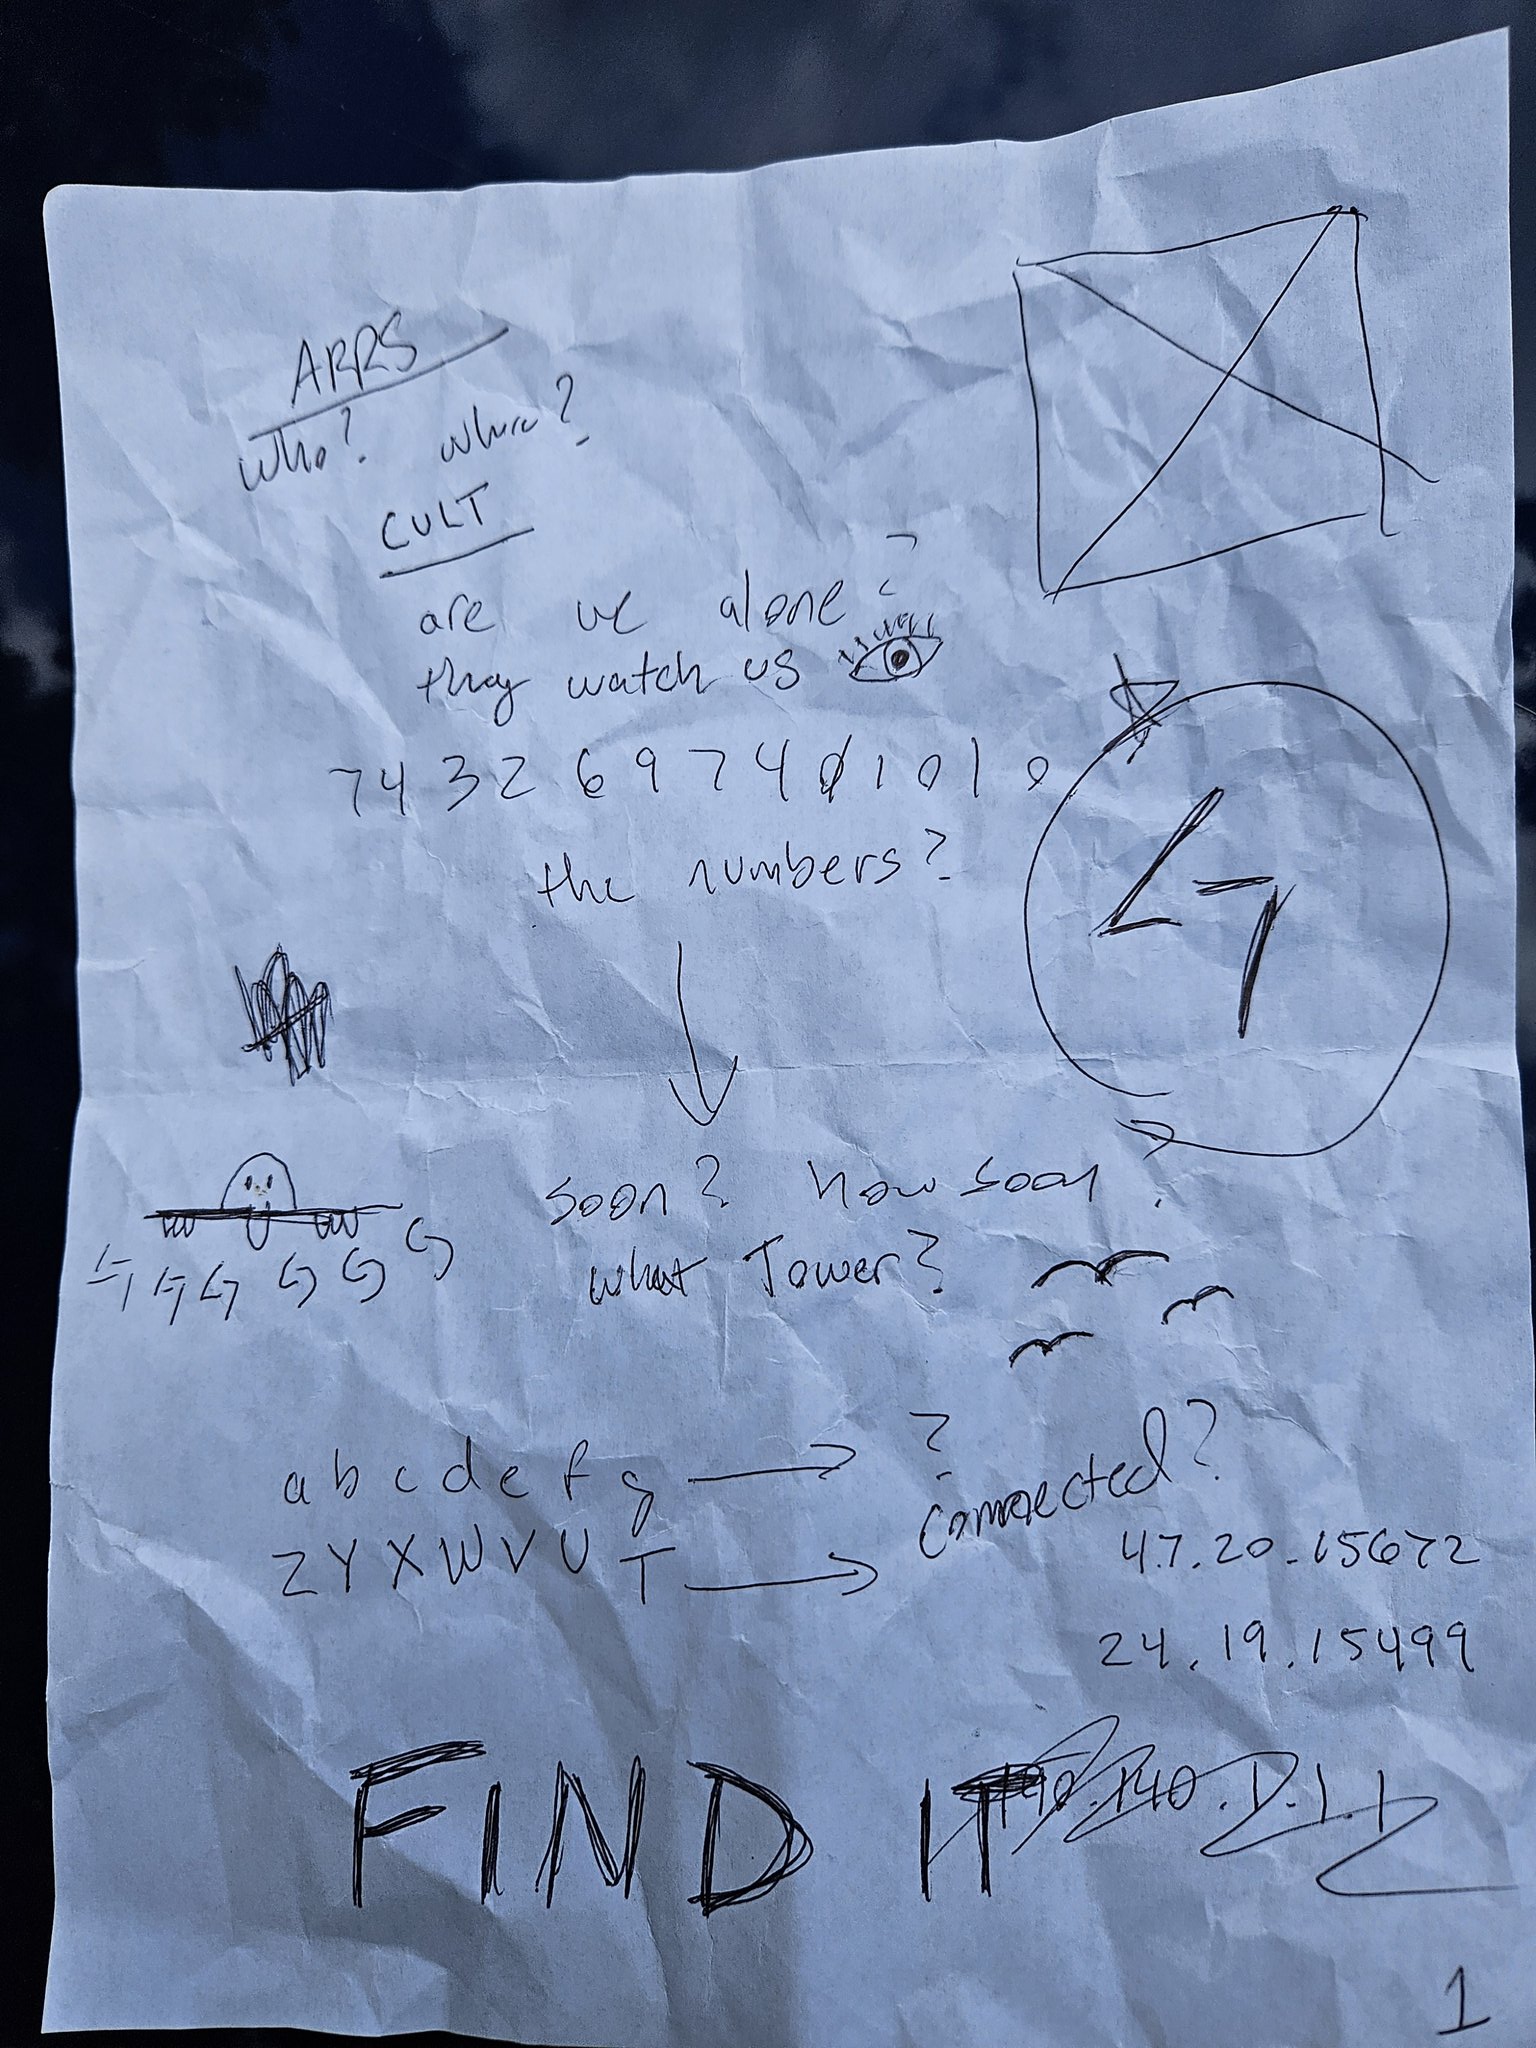 ARRS
who? where?
CULT
are we alone?
they watch us
7432697401010
the numbers?
soon? how soon?
what Tower?
abcdefg ?
ZYXWVUT
connected?
47.20.15672
24.19.15499
FIND IT
1